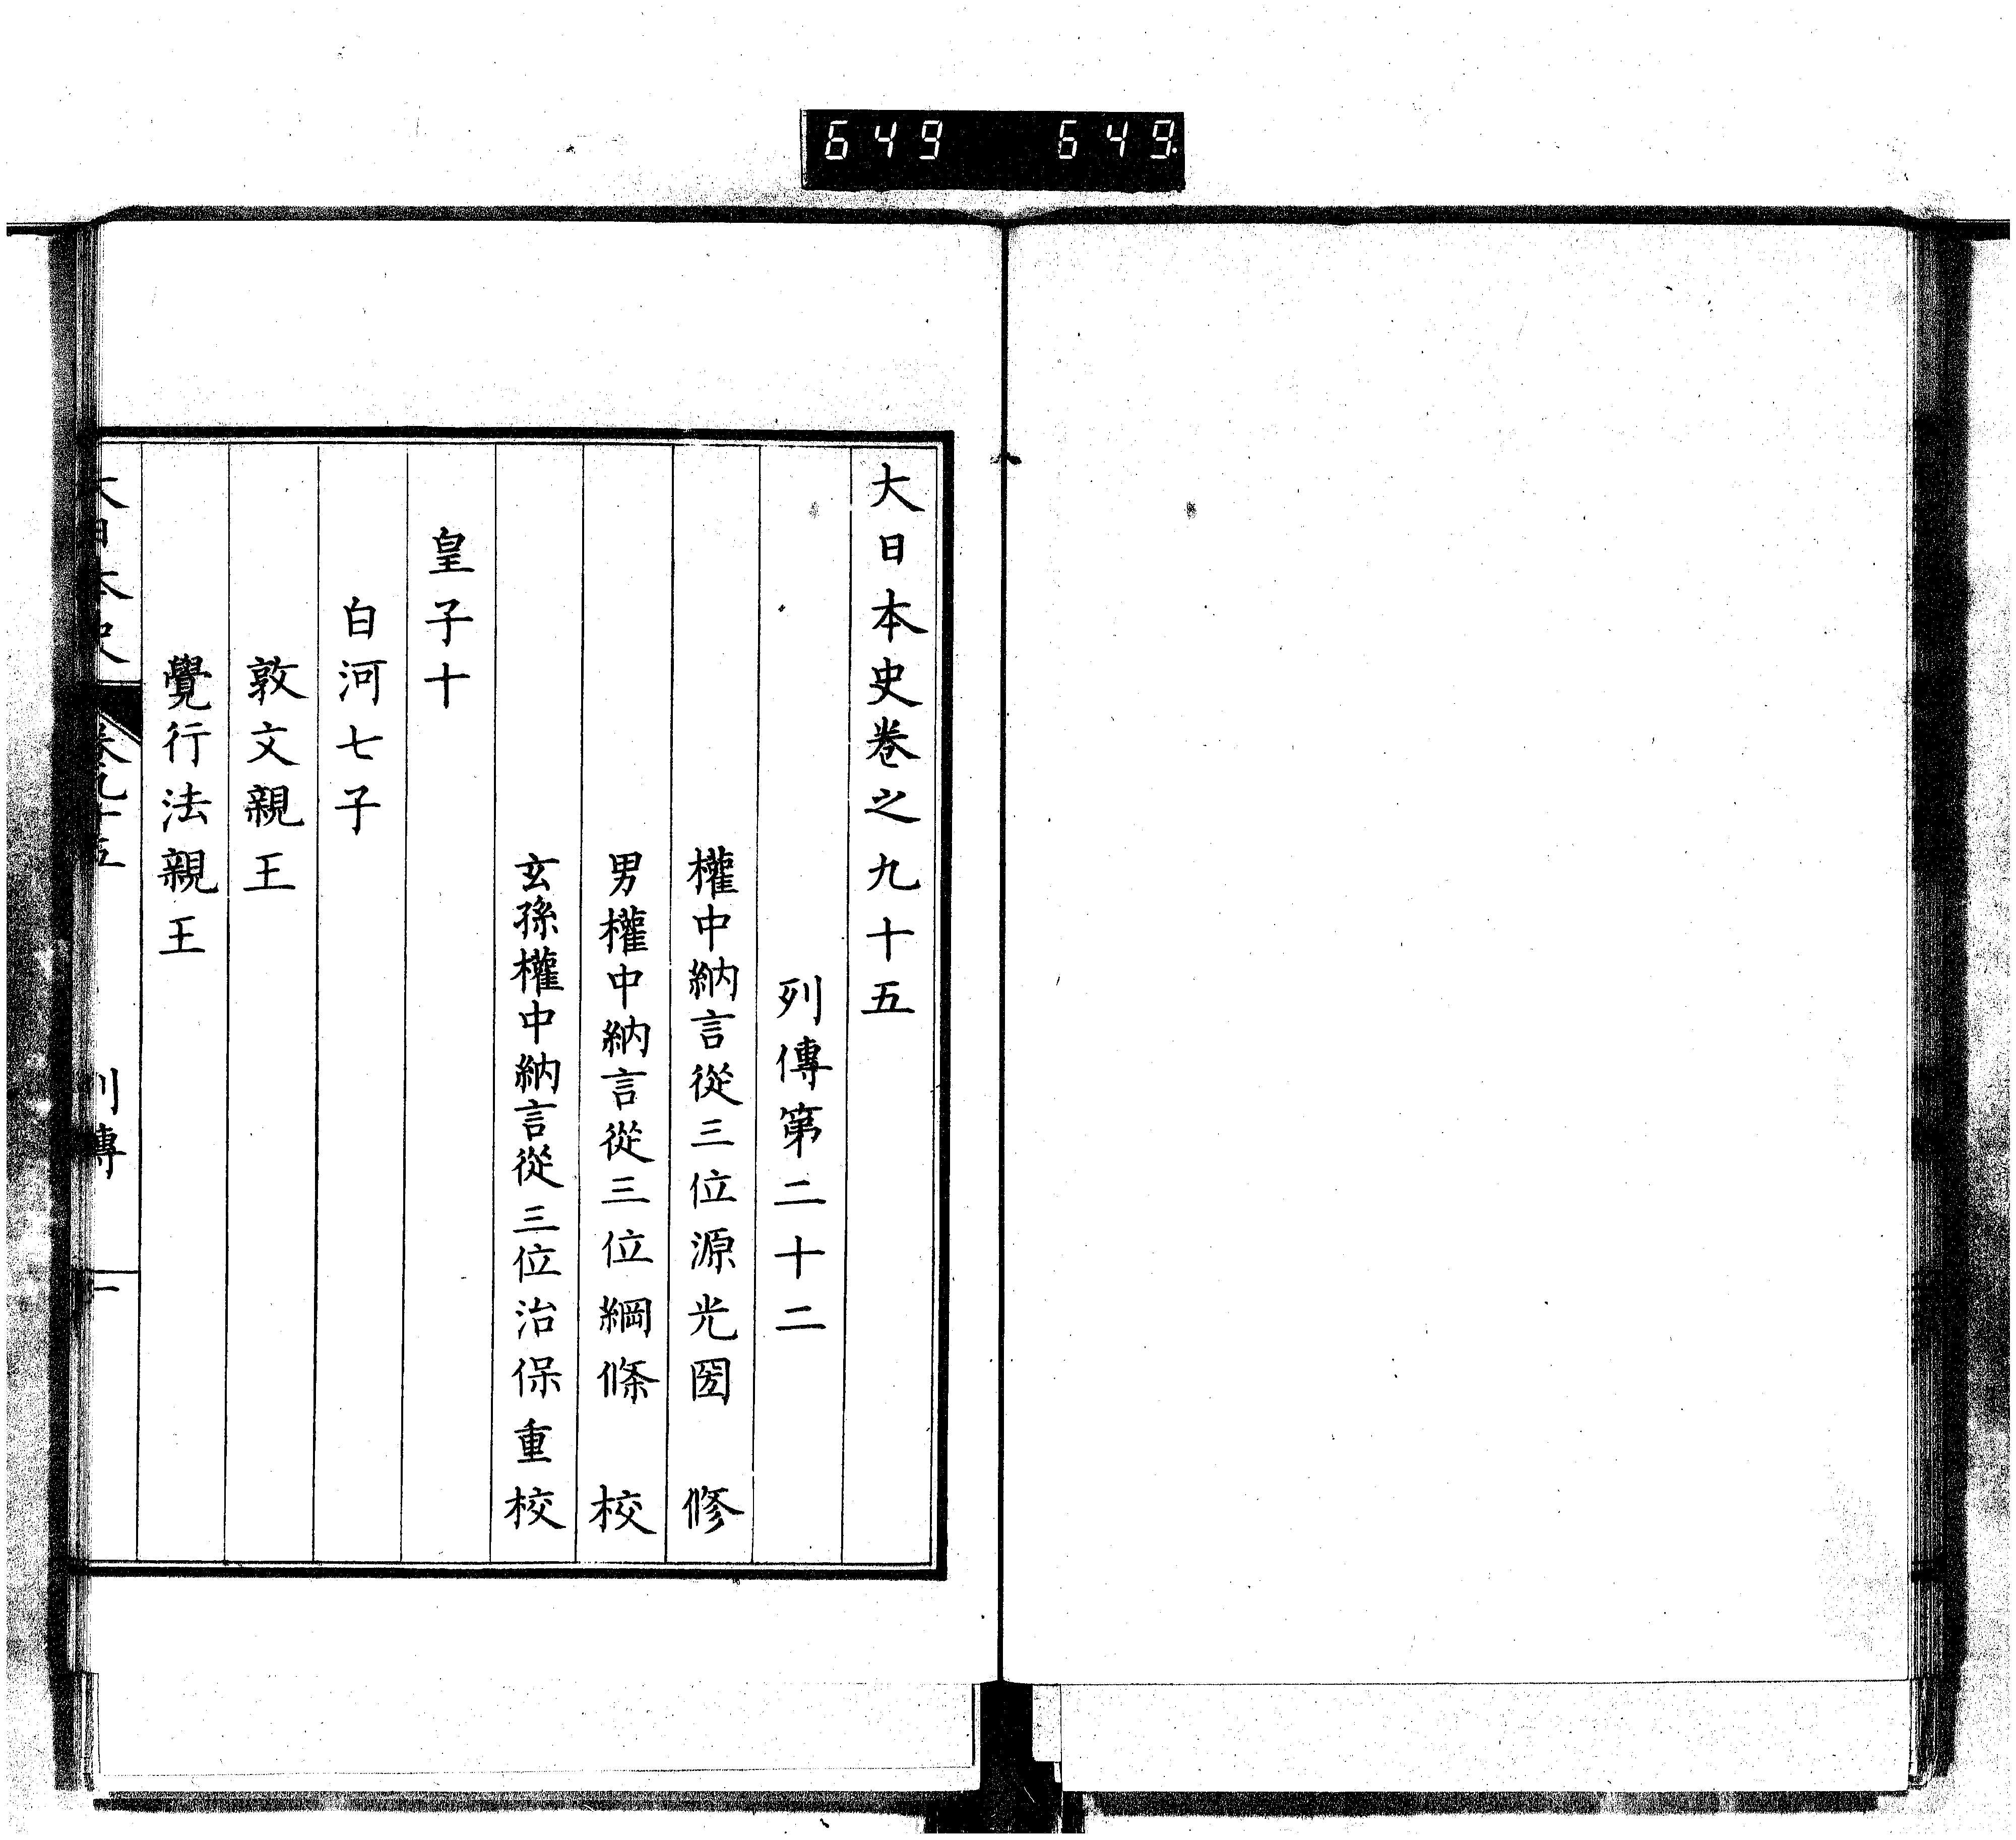 649 649
大日本史卷之九十五
列傳第二十二
權中納言從三位源光圀 修
男權中納言從三位綱條 校
玄孫權中納言從三位治保重校
皇子十
白河七子
敦文親王
覺行法親王
大日本史 卷九十五 列傳 一